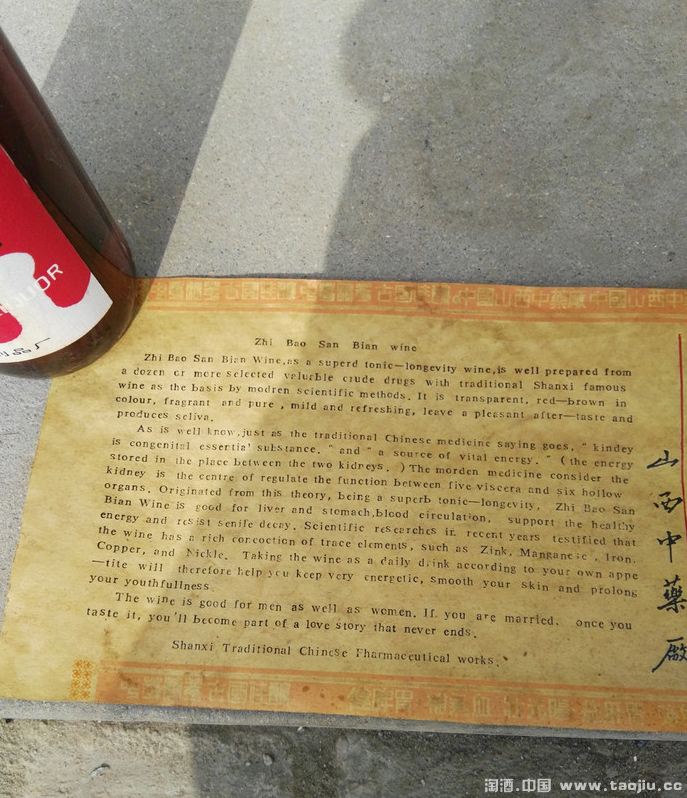 LIQUOR
品厂
中國山西中藥廠中國山西中
Zhi Bao San Bian wine
Zhi Bao San Bian Wine,as a superd tonic—longevity wine,is well prepared from
a dozen or more selected valurble crude drugs with traditional Shanxi famous
wine as the basis by modren scientific methods. It is transparent, red—brown in
colour, fragrant and pure , mild and refreshing, leave a pleasant after—taste and
produces seliva.
As is well know,just as the traditional Chinese medicine saying goes, " kindey
is congenital essential substance. " and " a source of vital energy. " ( the energy
stored in the place between the two kidreys. ) The morden medicine consider the
kidney is the centre of regulate the function between five viscera and six hollow
organs. Originated from this theory, being a superb tonic—longevity, Zhi Bao San
Bian Wine is good for liver and stomach,blood circulation, support the healthy
energy and resist senife decay. Scientific researches in recent years testified that
the wine has a rich concoction of trace elements, such as Zink, Manganese , Iron,
Copper, and Nickle. Taking the wine as a daily drink according to your own appe
—tite will therefore help you keep very energetic, smooth your skin and prolong
your youthfullness.
The wine is good for men as well as women. If you are married, once you
taste it, you'll become part of a love story that never ends.
Shanxi Traditional Chinese Fharmaceutical works.
山西中藥廠
淘酒.中国 www.taojiu.cc